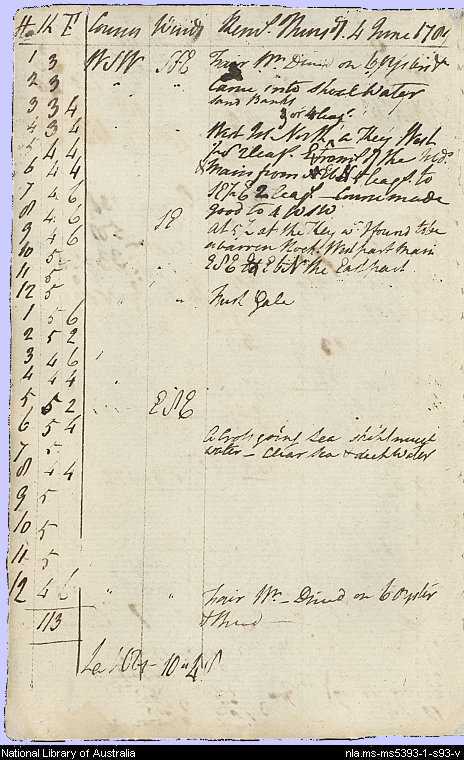 H. Kn Fs Courses Winds Remks Thursd. 4 June 1789
1 3 WSW SSE Fair Wr. Dined on 6 Oysters &
2 3 " " Came into Shoal Water
Sand Banks
3 3 4 3 or 4 leags
4 3 4 West to North a Key West
5 4 4 2 leags. Extreams of the
6 4 4 Main from 5 leags to
7 4 6 2 leags Course made
8 4 6 good to 4 WSW
9 4 6 SE At 5 at the Key wh I found to be
10 5 a barren Rock. Westpart Main
11 5 the East part
12 5 " Fresh Gale
1 5 6
2 5 2
3 4 6
4 4 4
5 5 2 ESE
6 5 4
7 5 A Cross going Sea
8 4 4 water – Clear Sea & deep Water
9 5
10 5
11 5
12 4 6 " " Fair Wr – Dined on 6 Oysters
113 & Bread —
Latd Obs 10 " 48 S
National Library of Australia nla.ms-ms5393-1-s93-v